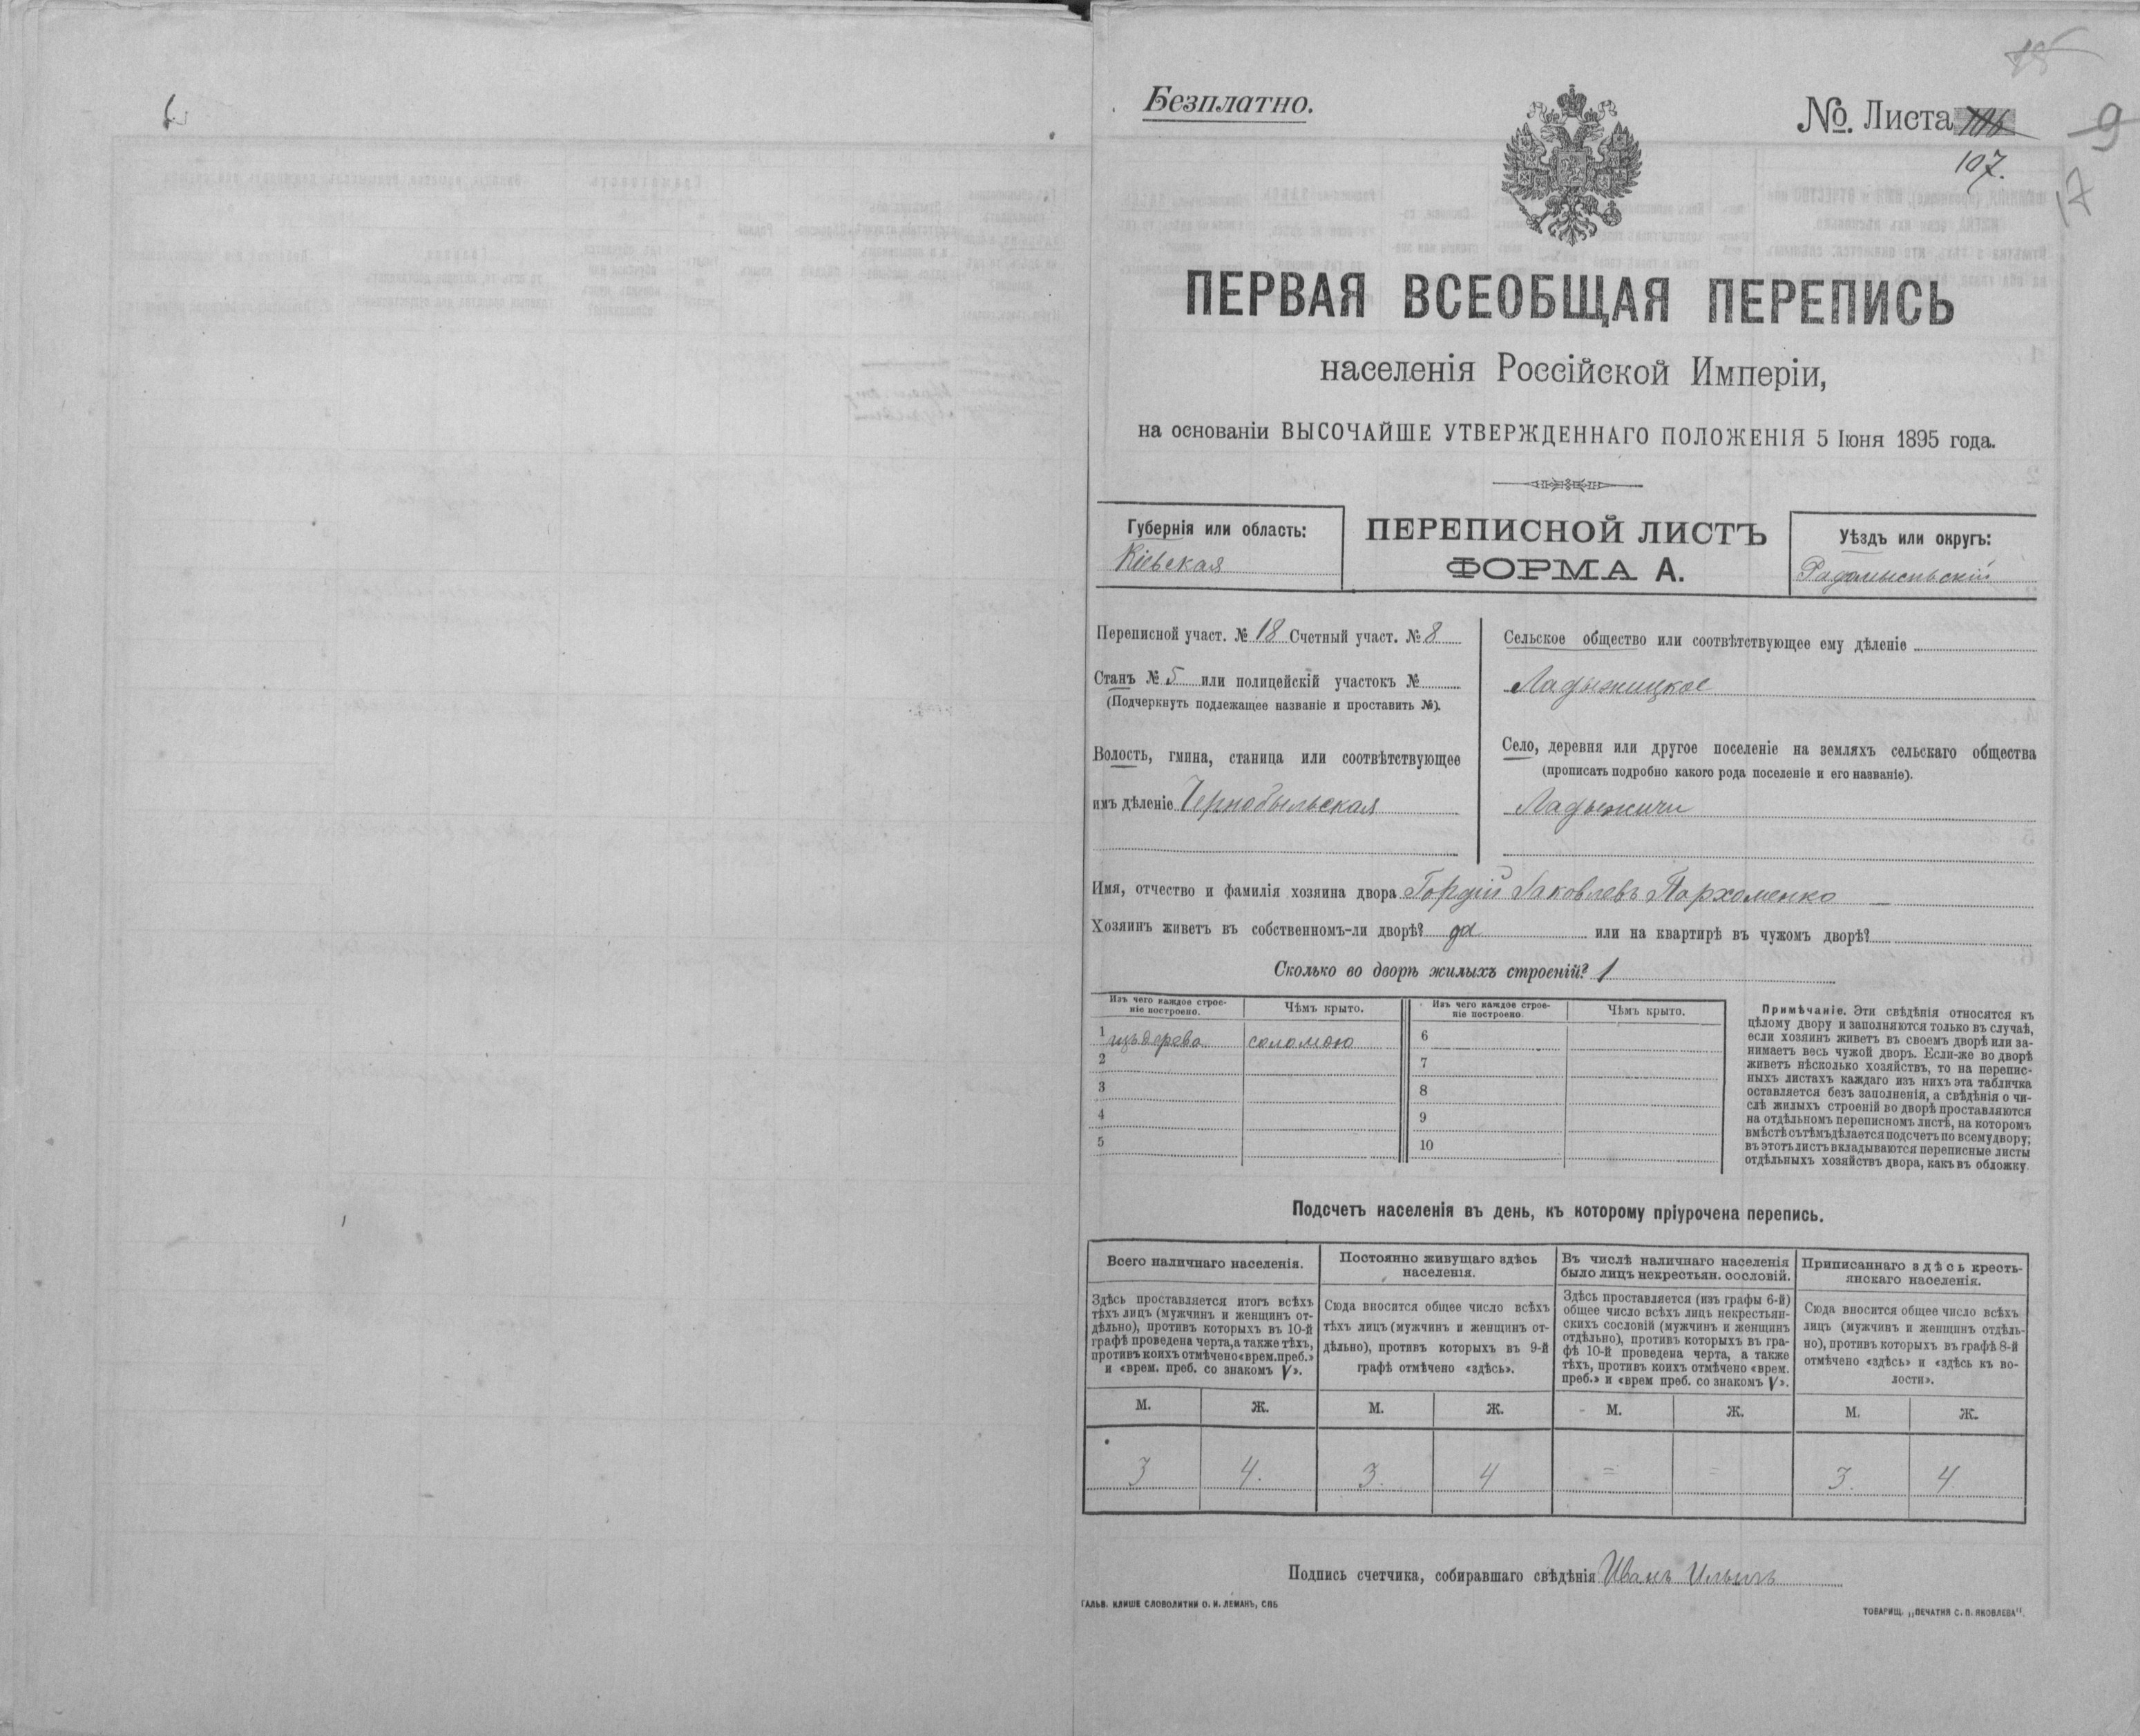 Безплатно.
№. Листа 106
107.
9
17
ПЕРВАЯ ВСЕОБЩАЯ ПЕРЕПИСЬ
населенія Россійской Имперіи,
на основаніи ВЫСОЧАЙШЕ УТВЕРЖДЕННАГО ПОЛОЖЕНІЯ 5 Іюня 1895 года.
Губернія или область:
Кіевская
ПЕРЕПИСНОЙ ЛИСТЪ
ФОРМА А.
Уѣздъ или округъ:
Радомысльскій
Переписной участ. № 18 Счетный участ. № 8
Станъ № 5 или полицейскій участокъ №
(Подчеркнуть подлежащее названіе и проставить №).
Волость, гмина, станица или соотвѣтствующее
имъ дѣленіе Чернобыльская
Сельское общество или соотвѣтствующее ему дѣленіе
Ладыжицкое
Село, деревня или другое поселеніе на земляхъ сельскаго общества
(прописать подробно какого рода поселеніе и его названіе).
Ладыжичи
Имя, отчество и фамилія хозяина двора Гордій Яковлевъ Пархоменко
Хозяинъ живетъ въ собственномъ-ли дворѣ? да или на квартирѣ въ чужомъ дворѣ?
Сколько во дворѣ жилыхъ строеній? 1
Изъ чего каждое строе-
ніе построено.
Чѣмъ крыто.
Изъ чего каждое строе-
ніе построено
Чѣмъ крыто.
1 изъ дерева соломою 6
2 7
3 8
4 9
5 10
Примѣчаніе. Эти свѣдѣнія относятся къ
цѣлому двору и заполняются только въ случаѣ,
если хозяинъ живетъ въ своемъ дворѣ или за-
нимаетъ весь чужой дворъ. Если-же во дворѣ
живетъ нѣсколько хозяйствъ, то на перепис-
ныхъ листахъ каждаго изъ нихъ эта табличка
оставляется безъ заполненія, а свѣдѣнія о чи-
слѣ жилыхъ строеній во дворѣ проставляются
на отдѣльномъ переписномъ листѣ, на которомъ
вмѣстѣ съ тѣмъ дѣлается подсчетъ по всему двору;
въ этотъ листъ вкладываются переписные листы
отдѣльныхъ хозяйствъ двора, какъ въ обложку
Подсчетъ населенія въ день, къ которому пріурочена перепись.
Всего наличнаго населенія.
Здѣсь проставляется итогъ всѣхъ
тѣхъ лицъ (мужчинъ и женщинъ от-
дѣльно), противъ которыхъ въ 10-й
графѣ проведена черта, а также тѣхъ,
противъ коихъ отмѣчено «врем. преб.»
и «врем. преб. со знакомъ V».
Постоянно живущаго здѣсь
населенія.
Сюда вносится общее число всѣхъ
тѣхъ лицъ (мужчинъ и женщинъ от-
дѣльно), противъ которыхъ въ 9-й
графѣ отмѣчено «здѣсь».
Въ числѣ наличнаго населенія
было лицъ некрестьян. сословій.
Здѣсь проставляется (изъ графы 6-й)
общее число всѣхъ лицъ некрестьян-
скихъ сословій (мужчинъ и женщинъ
отдѣльно), противъ которыхъ въ гра-
фѣ 10-й проведена черта, а также
тѣхъ, противъ коихъ отмѣчено «врем.
преб.» и «врем преб. со знакомъ V».
Приписаннаго здѣсь кресть-
янскаго населенія.
Сюда вносится общее число всѣхъ
лицъ (мужчинъ и женщинъ отдѣль-
но), противъ которыхъ въ графѣ 8-й
отмѣчено «здѣсь» и «здѣсь къ во-
лости».
М. Ж. М. Ж. М. Ж. М. Ж.
3 4. 3. 4 = = 3. 4
Подпись счетчика, собиравшаго свѣдѣнія Иванъ Ильичъ
ГАЛЬВ. КЛИШЕ СЛОВОЛИТНИ О. И. ЛЕМАНЪ, СПБ
ТОВАРИЩ. „ПЕЧАТНЯ С. П. ЯКОВЛЕВА".